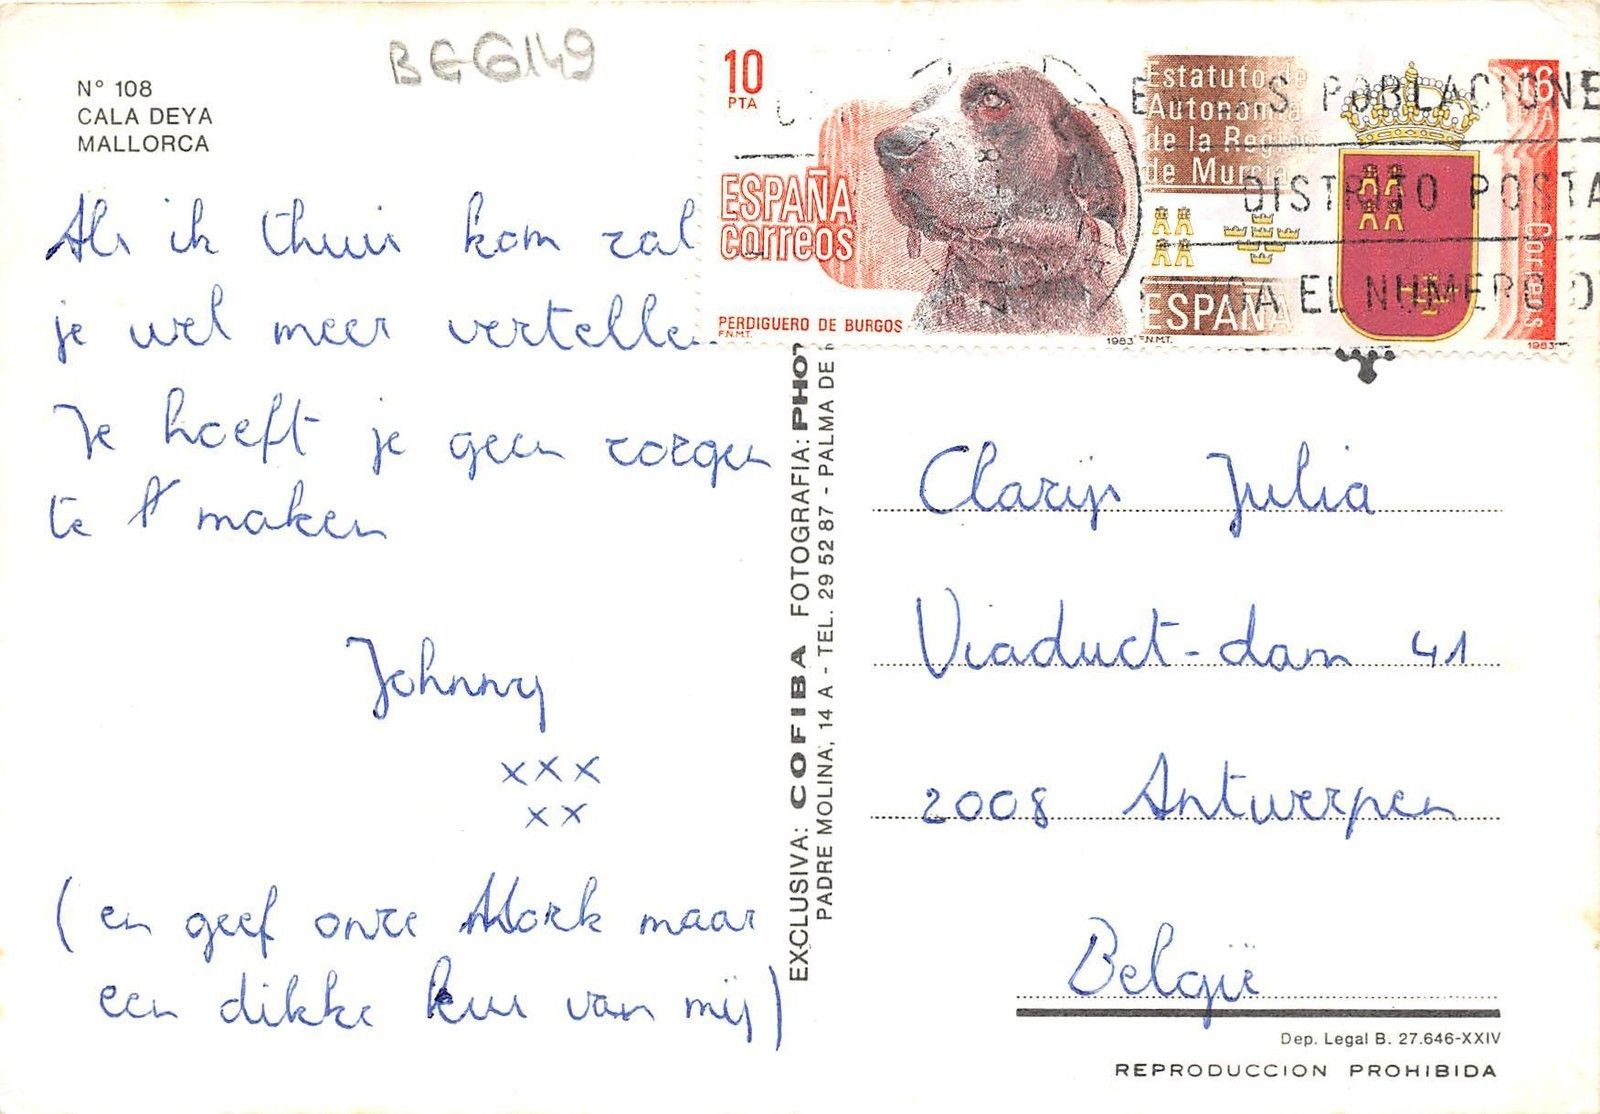 BEG149
N° 108
CALA DEYA
MALLORCA
Als ik thuis kom zal
je wel meer vertelle
Je hoeft je geen zorgen
te maken
Johnny
xxx
xx
(en geef onze Mork maar
een dikke kus van mij)
EXCLUSIVA: COFIBA FOTOGRAFIA: PHOT
PADRE MOLINA, 14 A - TEL. 29 52 87 - PALMA DE
10
PTA
ESPAÑA
correos
PERDIGUERO DE BURGOS
F.N.M.T.
1983
Estatuto de
Autonomía
de la Región
de Murcia
ESPAÑA
F.N.M.T.
16
PTA
Correos
1983
POBLACIONE
DISTRITO POSTA
EL NUMERO D
Clarijs Julia
Viaduct-dam 41
2008 Antwerpen
België
Dep. Legal B. 27.646-XXIV
REPRODUCCION PROHIBIDA